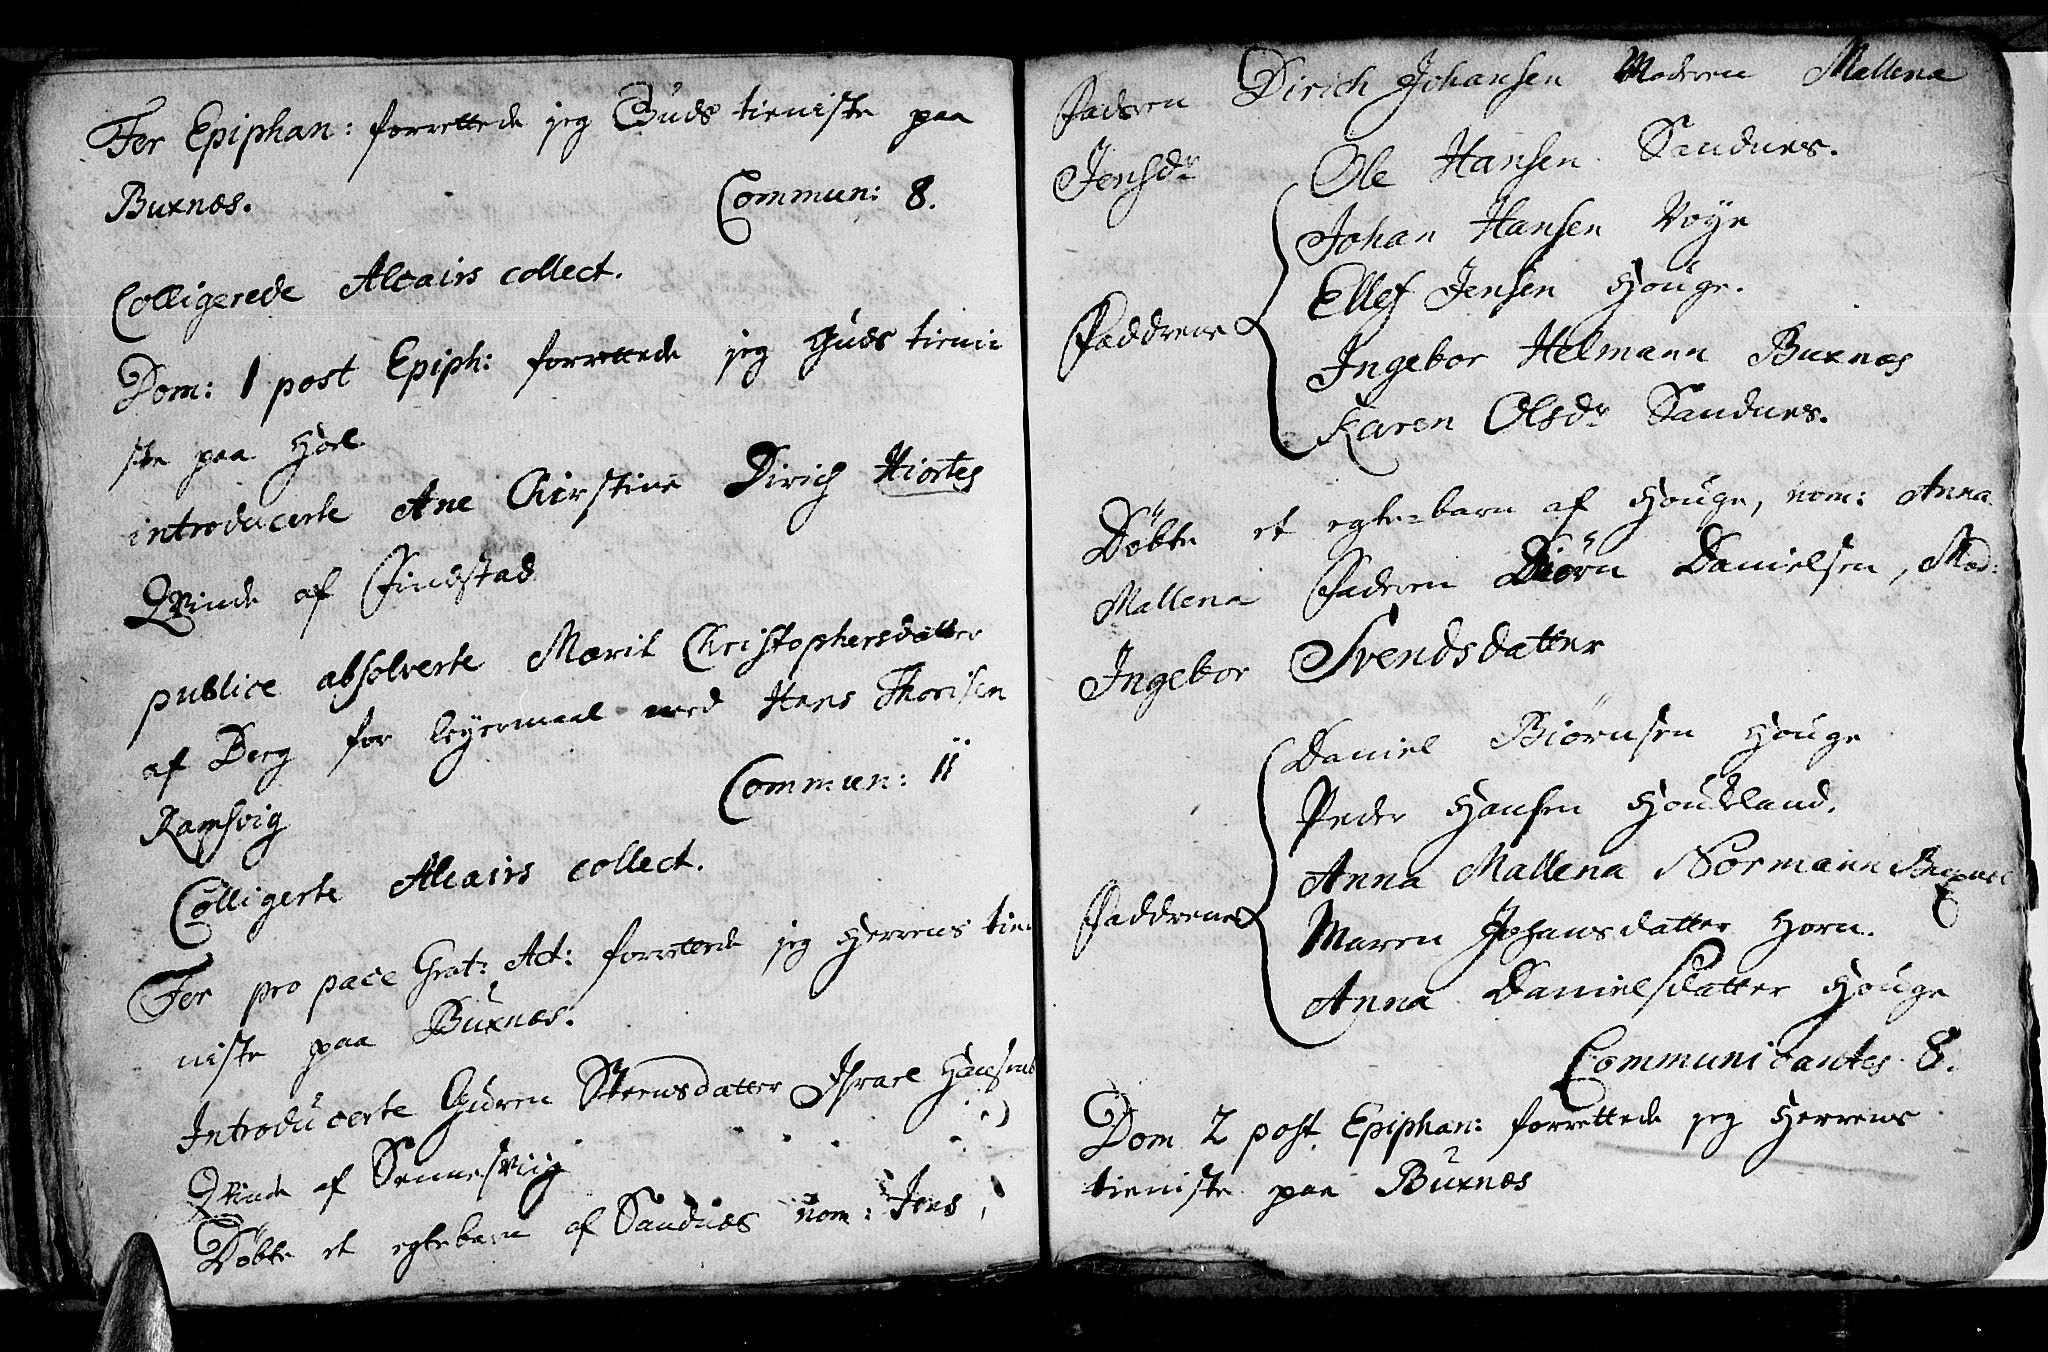 Fer Epiphan: forrettede jeg Guds tieniste paa
Buxnæs. Commun: 8.
Colligerede Alcairs collect.
Dom: 1 post Epiph: forrettede jeg Guds tieni=
ste paa Høel
introducerte Ane Chirstine Dirich Hiortes
Qvinde af Findstad
publice absolverte Marit Christophersdatter
af Berg for leyermaal med Hans Thorisen
Ramsvig Commun: 11
Colligerte Alcairs collect.
Fer pro pace Grat: Act: forrettede jeg Herrens tie
niste paa Buxnæs.
Introducerte Guren Steensdatter Israel Hansens
Qvinde af Sennesviig
Døbte et egtebarn af Sandnæs nom: Jens,
Faderen Dirich Johansen Moderen Mallena
Jensdr
Ole Hansen Sandnes.
Johan Hansen Voye
Ellef Jensen Houge.
Fadderne
Ingebor Helmann Buxnæs
Karen Olsdr Sandnes.
Døbte et egte=barn af Houge, nom: Anna
Mallena Faderen Biørn Danielsen, Mod:
Ingebor Svendsdatter
Daniel Biørnsen Houge
Peder Hansen Houkland.
Anna Mallena Normann Buxnes
Fadderne
Maren Johansdatter Horn.
Anna Danielsdatter Houge
Communicantes 8.
Dom 2 post Epiphan: forrettede jeg Herrens
tieniste paa Buxnæs